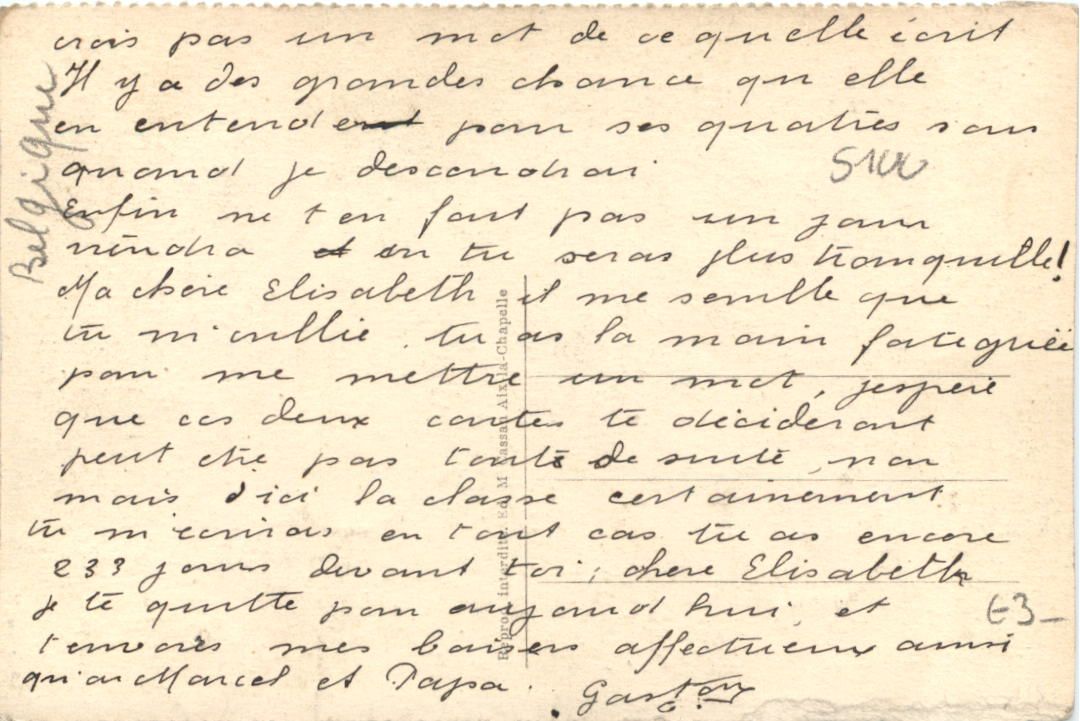 crois pas un mot de ce quelle écrit
Il y a des grandes chance qu elle
en entendent pour ses quatres sous
quand je descendrai
Enfin ne t en fait pas un jour
viendra et en tu seras plus tranquille!
Ma chère Elisabeth il me semble que
tu m'oublie, tu as la main fatiguéé
pour me mettre un mot, jespere
que ces deux cartes te décideront
peut etre pas toute de suite, non
mais d'ici la classe certainement
tu m'ecriras en tout cas tu as encore
233 jours devant toi; chere Elisabeth
je te quitte pour aujourd hui, et
t'envoies mes baisers affectueux ainsi
qu'a Marcel et Papa. Gaston
Belgique
63-
Reprod. interdite. Ed. M Aix-la-Chapelle